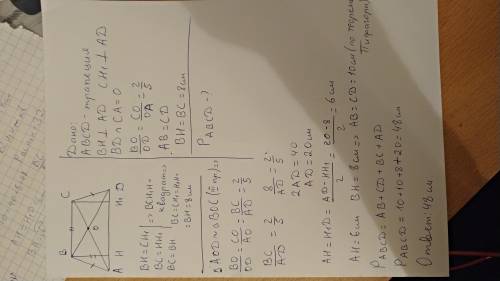 B C
O
A H H₁ D
Дано:
ABCD - трапеция
BH ⊥ AD CH₁ ⊥ AD
BD ∩ CA = O
BO/OD = CO/OA = 2/5
AB = CD
BH = BC = 8 см
P ABCD - ?
BH = CH₁
BC = HH₁
BC = BH
=> BCH₁H - квадрат =>
BC = CH₁ = HH₁ = BH = 8 см
Δ AOD ~ Δ BOC
BO/OD = CO/AO = BC/AD = 2/5
BC/AD = 2/5 8/AD = 2/5
2AD = 40
AD = 20 см
AH = H₁D = AD - HH₁/2 = 20 - 8/2 = 6 см
AH = 6 см BH = 8 см => AB = CD = 10 см (по теореме Пифагора)
P ABCD = AB + CD + BC + AD
P ABCD = 10 + 10 + 8 + 20 = 48 см
Ответ: 48 см